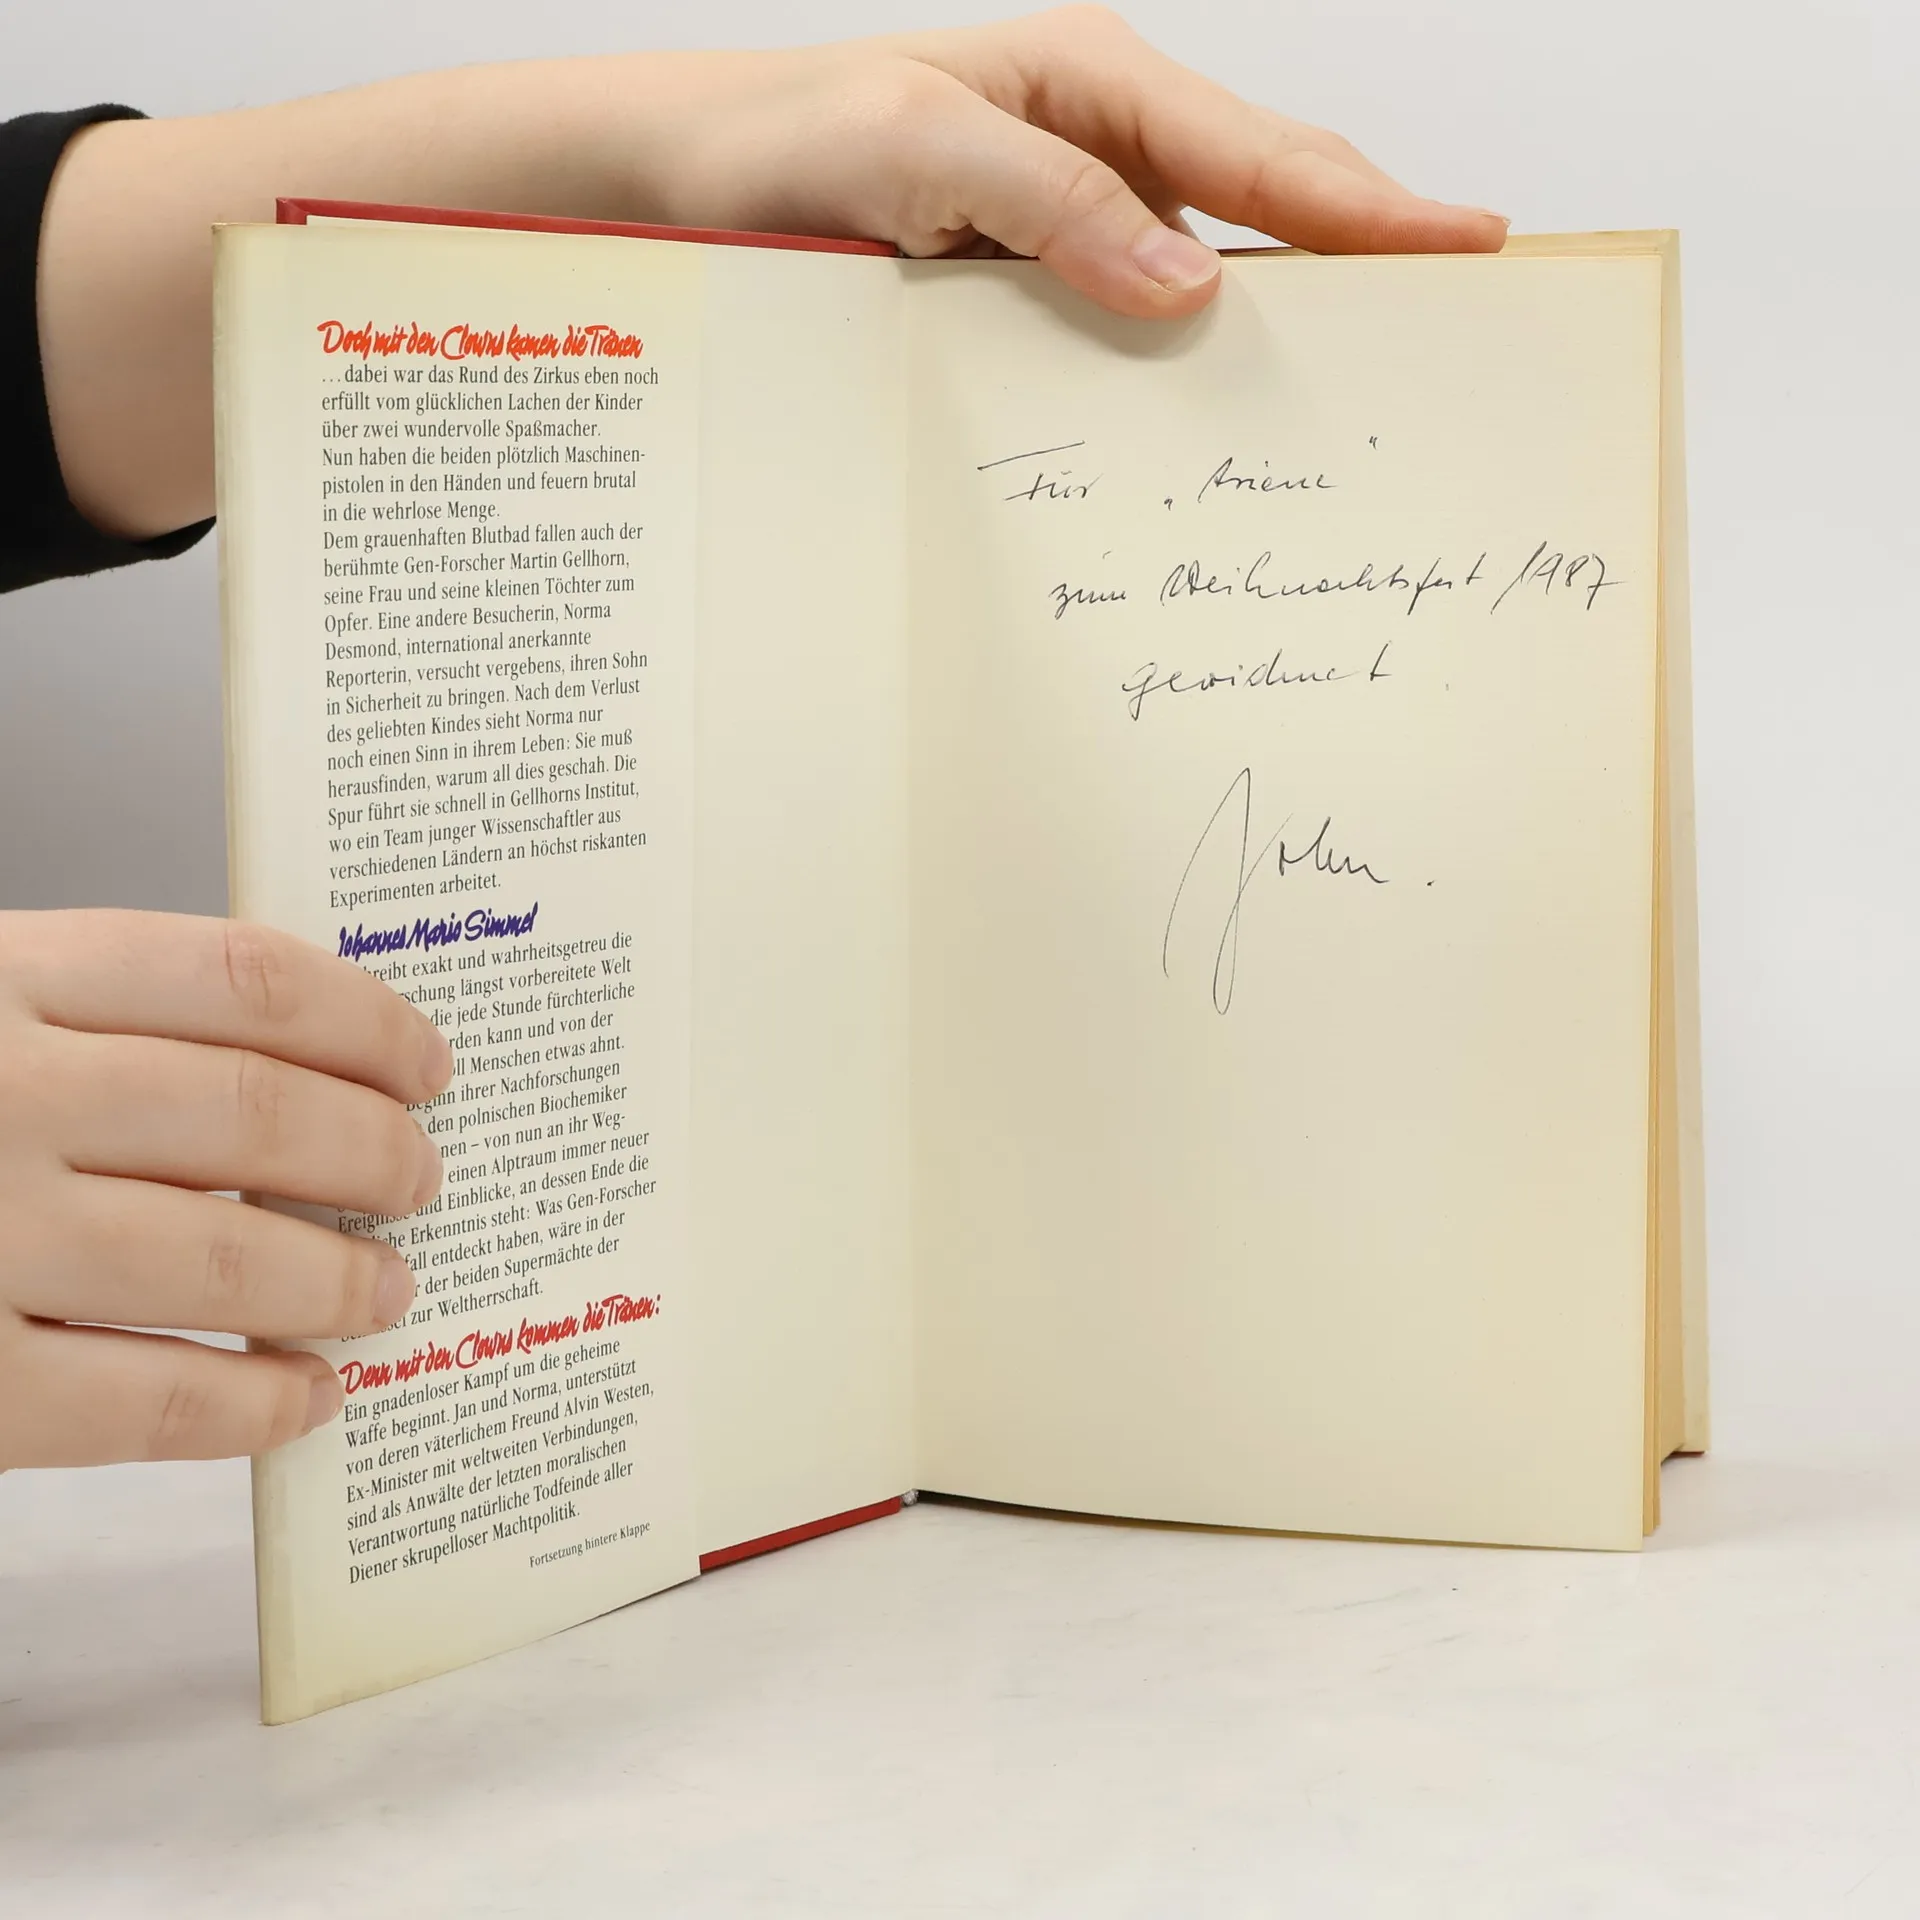 Doch mit den Clowns kamen die Tränen
...dabei war das Rund des Zirkus eben noch
erfüllt vom glücklichen Lachen der Kinder
über zwei wundervolle Spaßmacher.
Nun haben die beiden plötzlich Maschinen-
pistolen in den Händen und feuern brutal
in die wehrlose Menge.
Dem grauenhaften Blutbad fallen auch der
berühmte Gen-Forscher Martin Gellhorn,
seine Frau und seine kleinen Töchter zum
Opfer. Eine andere Besucherin, Norma
Desmond, international anerkannte
Reporterin, versucht vergebens, ihren Sohn
in Sicherheit zu bringen. Nach dem Verlust
des geliebten Kindes sieht Norma nur
noch einen Sinn in ihrem Leben: Sie muß
herausfinden, warum all dies geschah. Die
Spur führt sie schnell in Gellhorns Institut,
wo ein Team junger Wissenschaftler aus
verschiedenen Ländern an höchst riskanten
Experimenten arbeitet.
Johannes Mario Simmel
exakt und wahrheitsgetreu die
längst vorbereitete Welt
die jede Stunde fürchterliche
kann und von der
Menschen etwas ahnt.
ihrer Nachforschungen
den polnischen Biochemiker
– von nun an ihr Weg-
einen Alptraum immer neuer
und Einblicke, an dessen Ende die
Erkenntnis steht: Was Gen-Forscher
entdeckt haben, wäre in der
der beiden Supermächte der
zur Weltherrschaft.
Denn mit den Clowns kommen die Tränen:
Ein gnadenloser Kampf um die geheime
Waffe beginnt. Jan und Norma, unterstützt
von deren väterlichem Freund Alvin Westen,
Ex-Minister mit weltweiten Verbindungen,
sind als Anwälte der letzten moralischen
Verantwortung natürliche Todfeinde aller
Diener skrupelloser Machtpolitik.
Fortsetzung hintere Klappe
Für
zum Weihnachtsfest 1987
gewidmet
John.